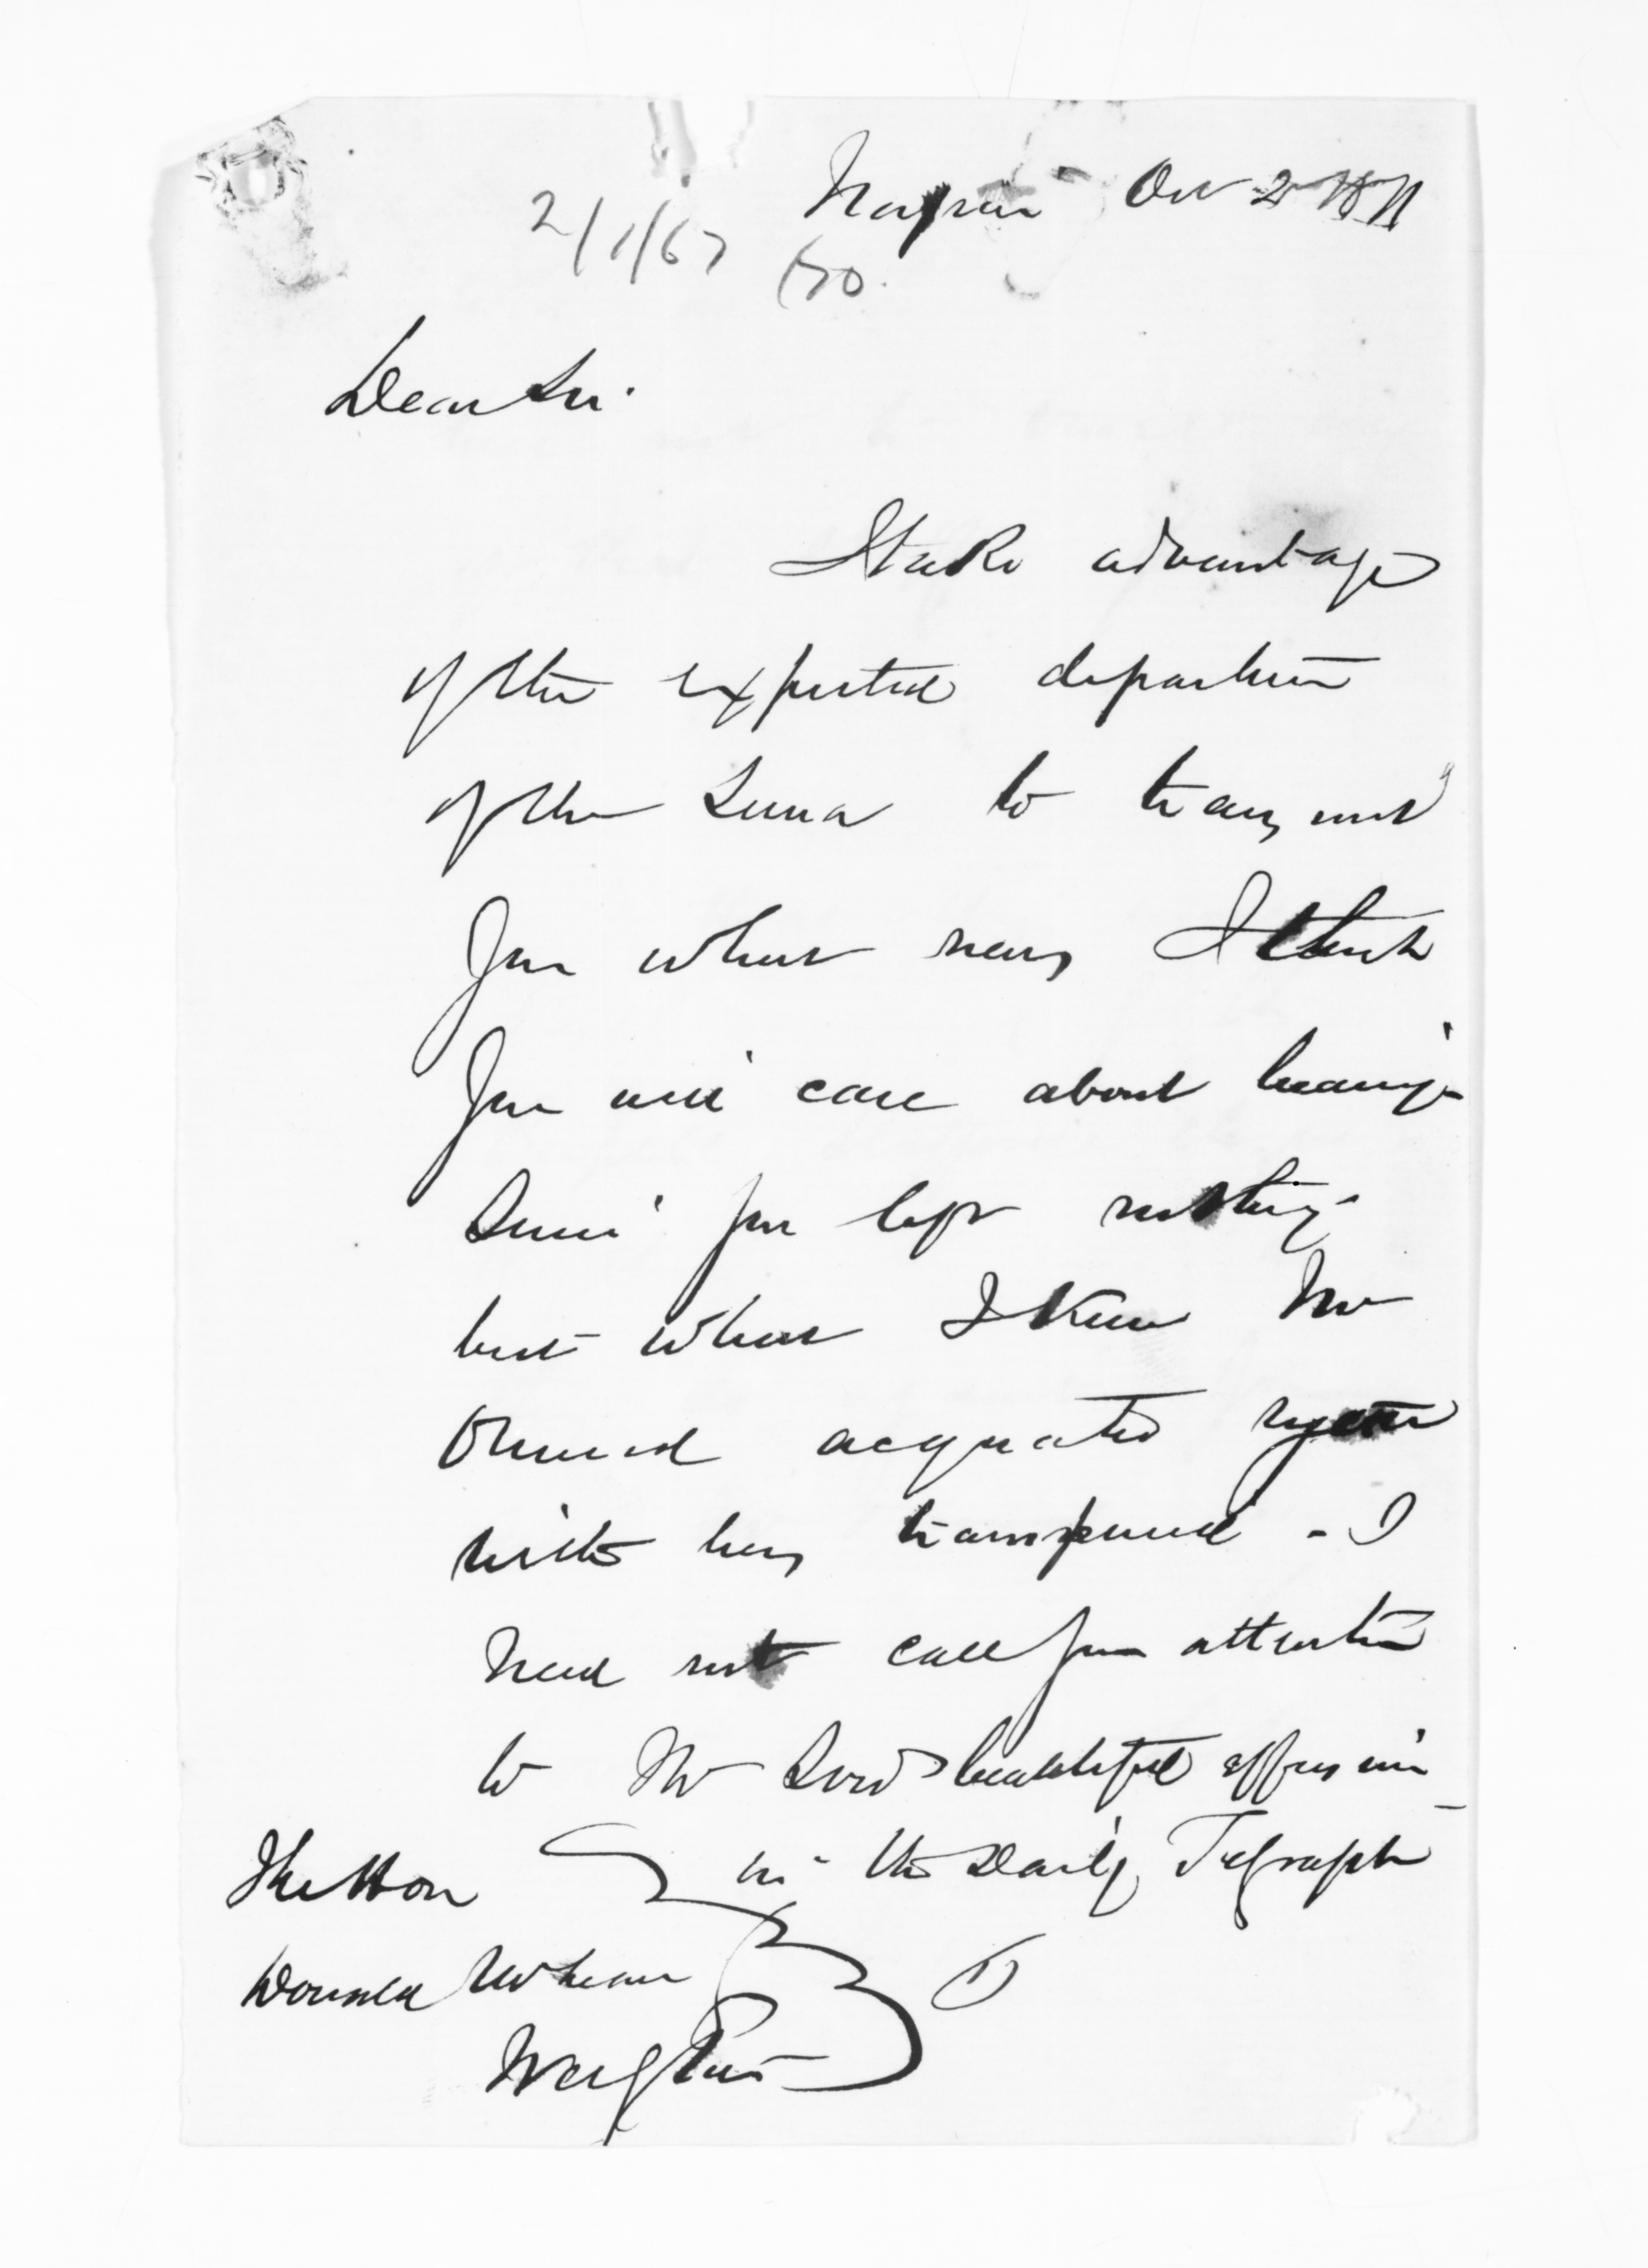 Napier Oct 2
2/1/67 (70.
Dear Sir.
I take advantage
of the expected departure
of the Luna to transmit
you what news I think
you will care about hearing
Since you left nothing
but what I knew Mr
Ormond acquainted
with has transpired - I
need not call your attention
to Mr Lord's beautiful effusion
in the Daily Telegraph
The Hon
Donald McLean
Wellington